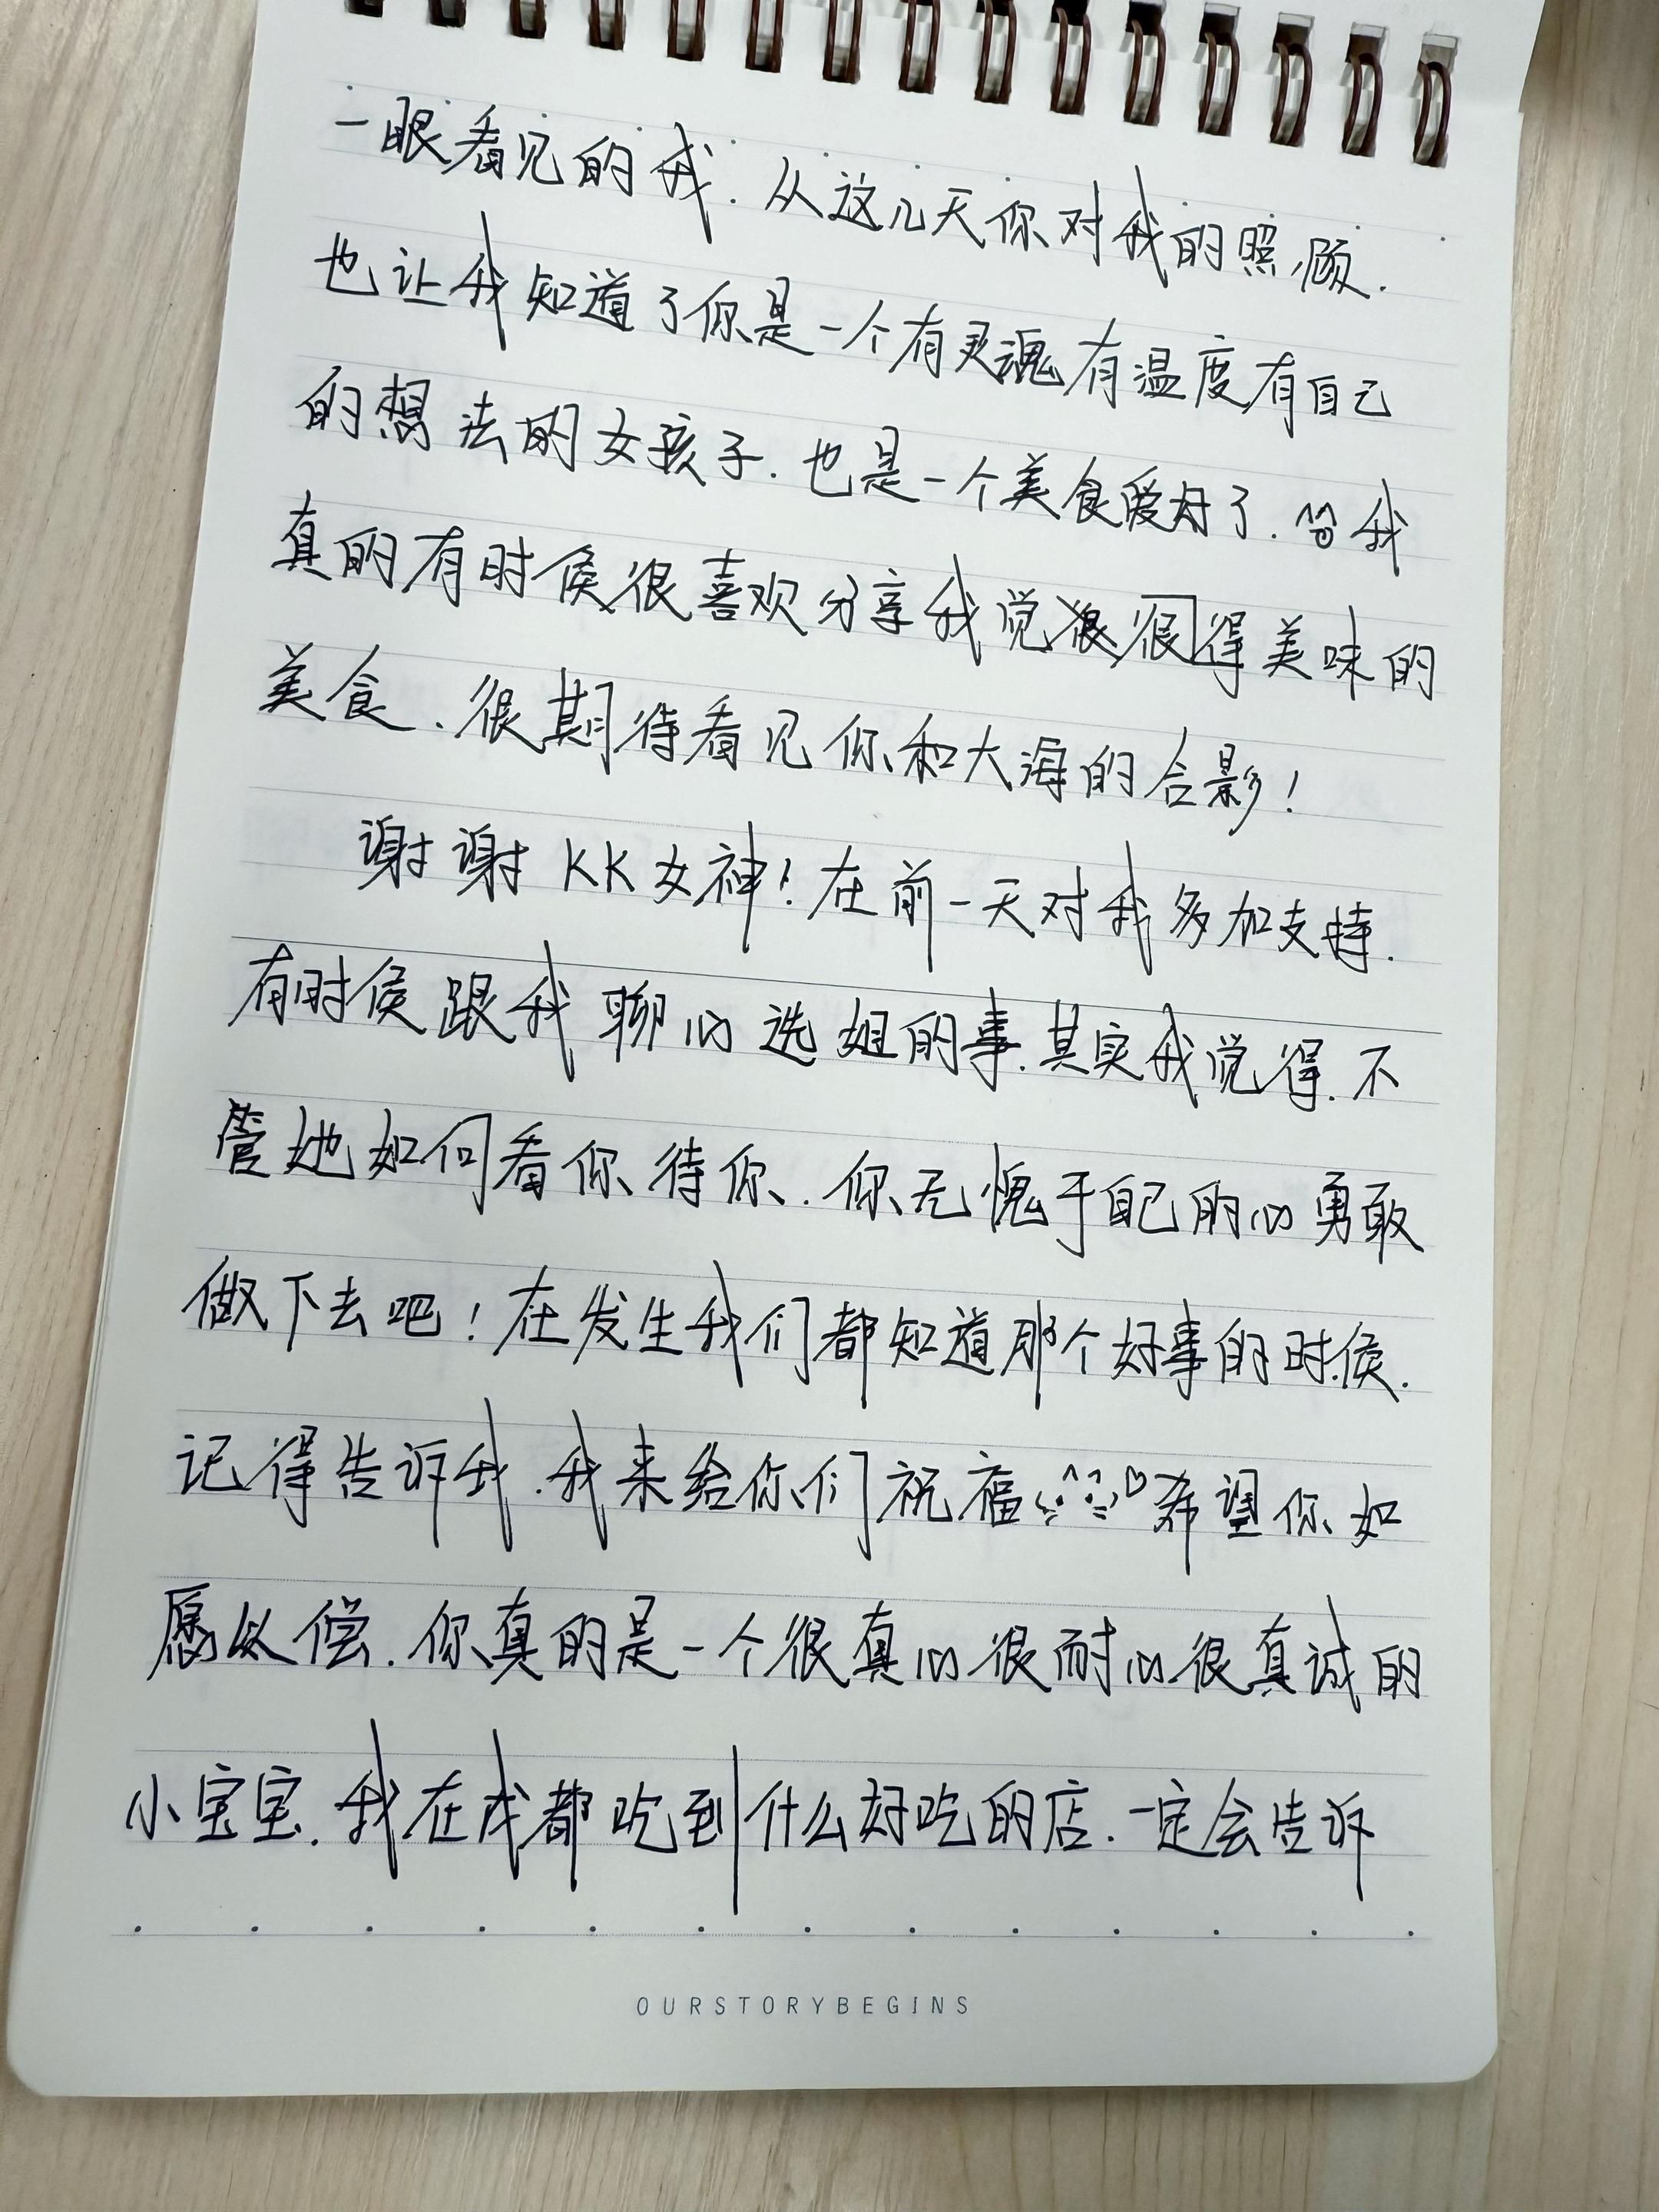 一眼看见的我.从这几天你对我的照顾.
也让我知道了你是一个有灵魂有温度有自己
的想法的女孩子.也是一个美食爱好了.我
真的有时候很喜欢分享我觉得美味的
美食.很期待看见你和大海的合影!
谢谢KK女神!在前一天对我多加支持.
有时候跟我聊心选姐的事.其实我觉得.不
管她如何看你待你.你无愧于自己的心勇敢
做下去吧!在发生我们都知道那个好事的时候.
记得告诉我.我来给你们祝福希望你如
愿以偿.你真的是一个很真心很耐心很真诚的
小宝宝.我在成都吃到什么好吃的店.一定会告诉
OURSTORYBEGINS